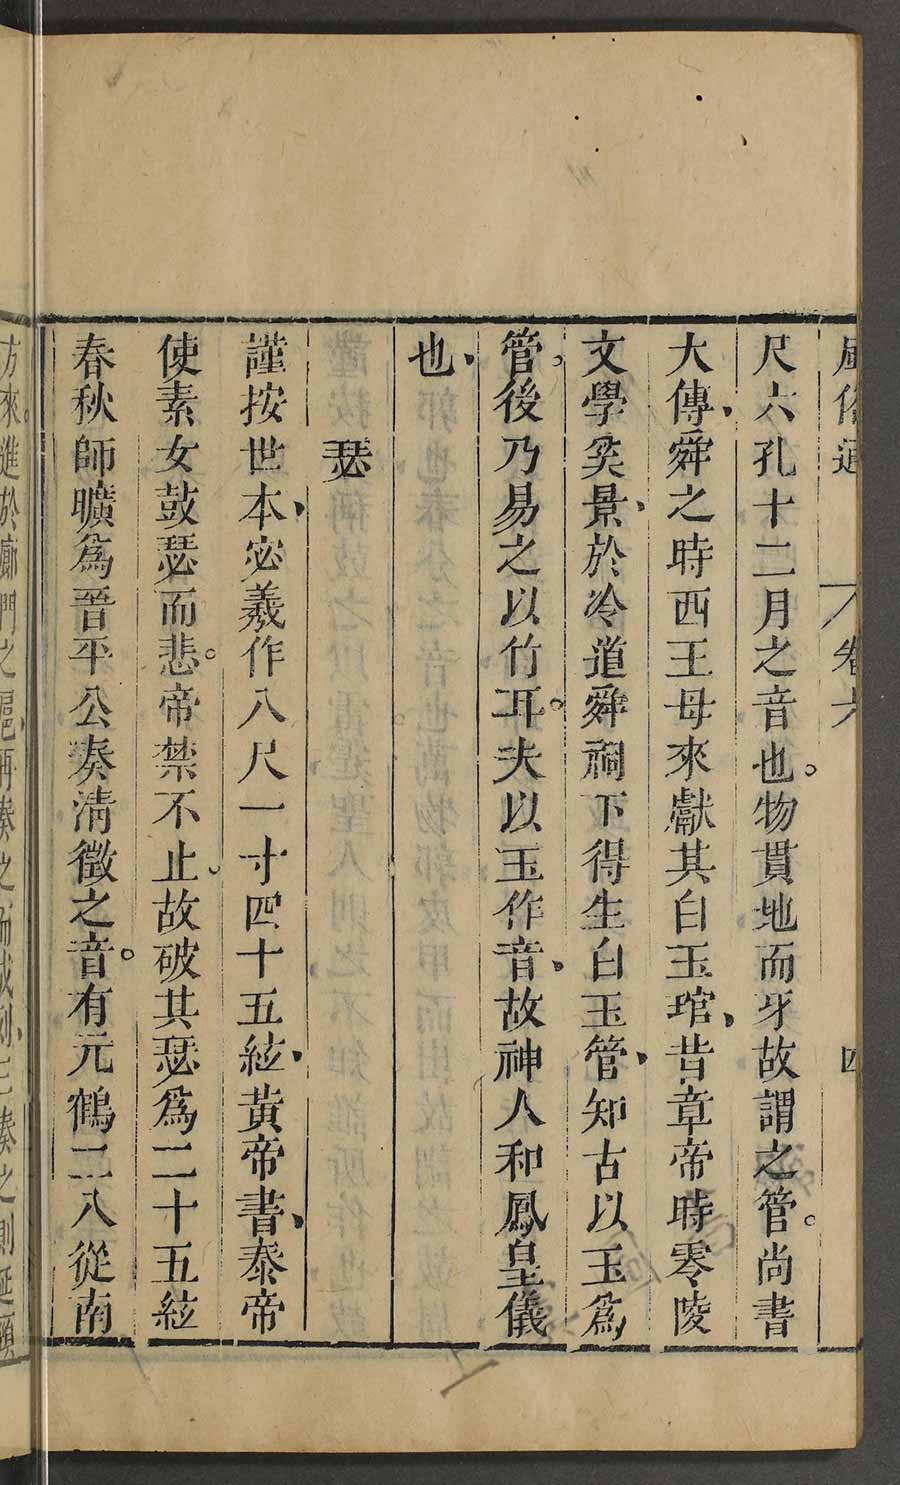 風俗通 卷六 四
尺六孔十二月之音也。物貫地而牙故謂之管。尚書
大傳、舜之時西王母來獻其白玉琯、昔章帝時零陵
文學奚景、於冷道舜祠下得生白玉管、知古以玉爲
管。後乃易之以竹耳。夫以玉作音、故神人和鳳皇儀
也、
瑟
謹按世本、宓羲作八尺一寸四十五絃、黃帝書、泰帝
使素女鼓瑟而悲。帝禁不止、故破其瑟爲二十五絃
春秋師曠爲晉平公奏清徵之音。有元鶴二八從南
方來。進於廊門之扈再奏之而成列、三奏之則延頸